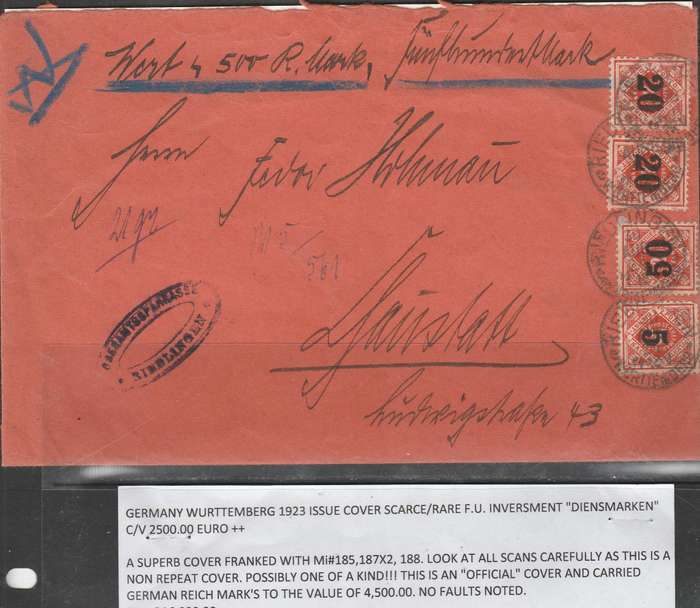 Wert 500 R. Mark, Fünfhundert Mark
20
20
50
5
Herrn Fedor Hohnau
561
OBERAMTSSPARKASSE
RIEDLINGEN
Ludwigstraße 43
GERMANY WURTTEMBERG 1923 ISSUE COVER SCARCE/RARE F.U. INVERSMENT "DIENSMARKEN"
C/V 2500.00 EURO ++
A SUPERB COVER FRANKED WITH Mi#185,187X2, 188. LOOK AT ALL SCANS CAREFULLY AS THIS IS A
NON REPEAT COVER. POSSIBLY ONE OF A KIND!!! THIS IS AN "OFFICIAL" COVER AND CARRIED
GERMAN REICH MARK'S TO THE VALUE OF 4,500.00. NO FAULTS NOTED.